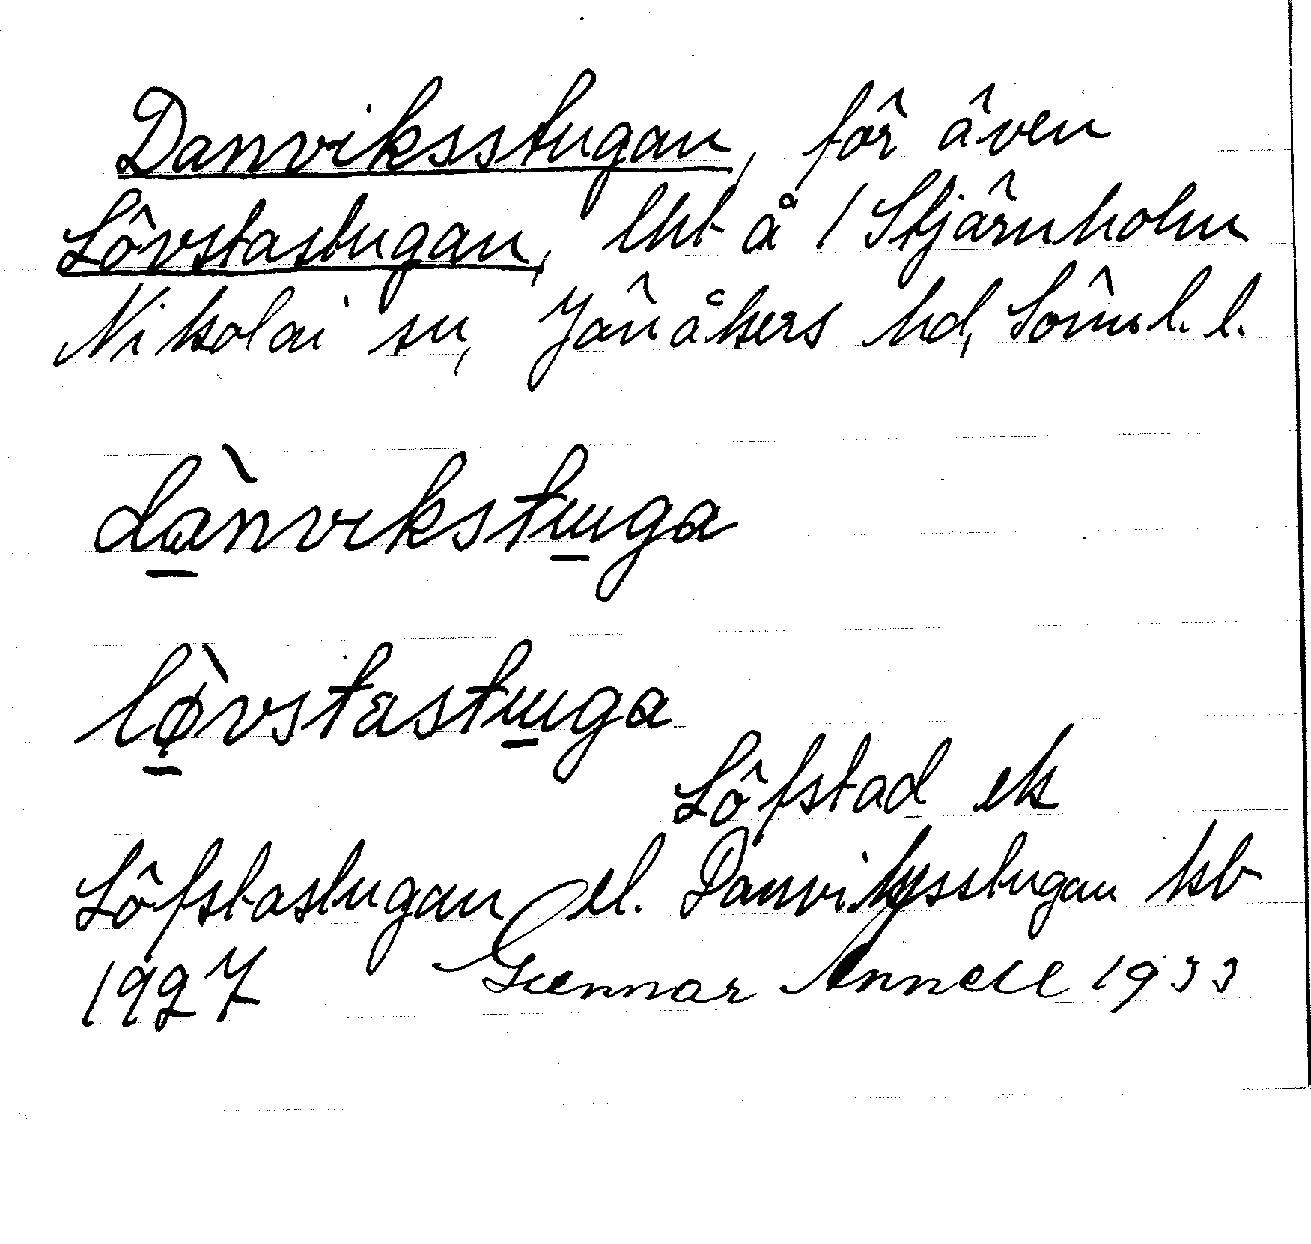 Danviksstugan, för även
Lövstastugan, lht å 1 Stjärnholm
Nikolai sn, Jönåkers hd, Sörml. l.
dànvikstɯga
lø̀vstastɯga
Löfstad ek
Löfstastugan el. Danviksstugan kb
1927 Gunnar Annell 1933